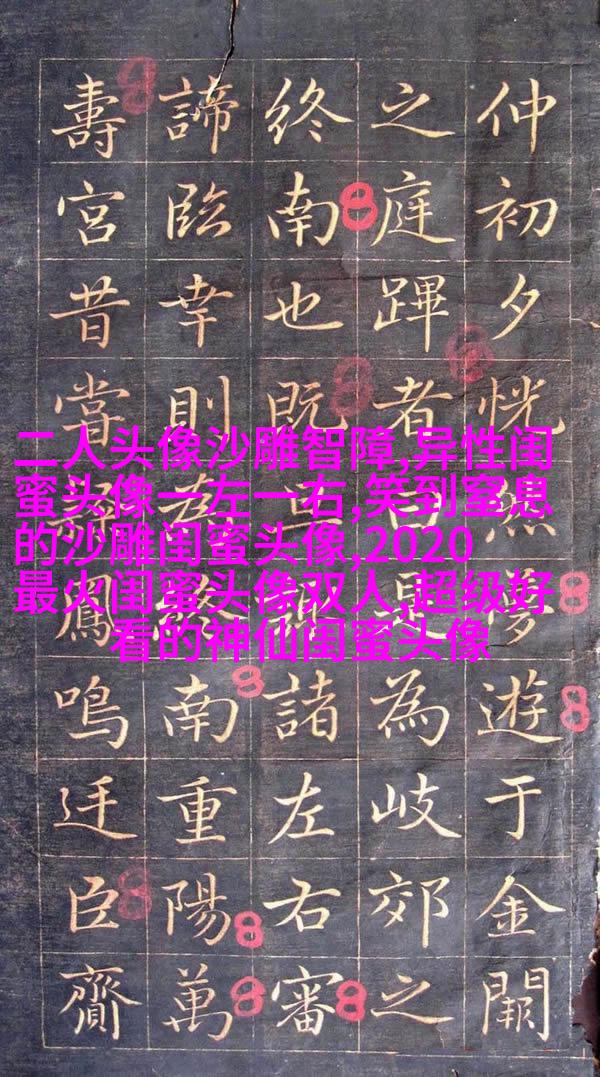 仲初夕恍然遊于金闕
之庭蹕者曰為岐郊之
終南也既諸左右審
諦臨幸則南重陽萬
壽宮昔當鳳鳴廷臣齎
二人头像沙雕智障,异性闺
蜜头像一左一右,笑到窒息
的沙雕闺蜜头像,2020
最火闺蜜头像双人,超级好
看的神仙闺蜜头像